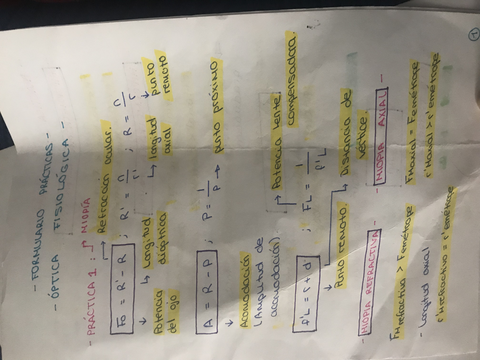 - FORMULARIO PRÁCTICAS -
- ÓPTICA FISIOLÓGICA -
- PRÁCTICA 1: 1ª MIOPÍA
Refracción ocular.
Fo = R' - R ; R' = n'/r' ; R = n/r
Potencia del ojo
Longitud dióptrica
longitud axial
punto remoto
A = R - P ; P = 1/p → punto próximo
Acomodación
(Amplitud de
acomodación).
Potencia lente.
compensadora.
f'L = r + d ; FL = 1/f'L
Punto remoto.
Distancia de
vértice.
- MIOPIA REFRACTIVA -
F M refractivo > F emétrope
- Longitud axial
r' M refractivo = r' emétrope
MIOPIA AXIAL
F M axial = F emétrope
r' M axial > r' emétrope
1